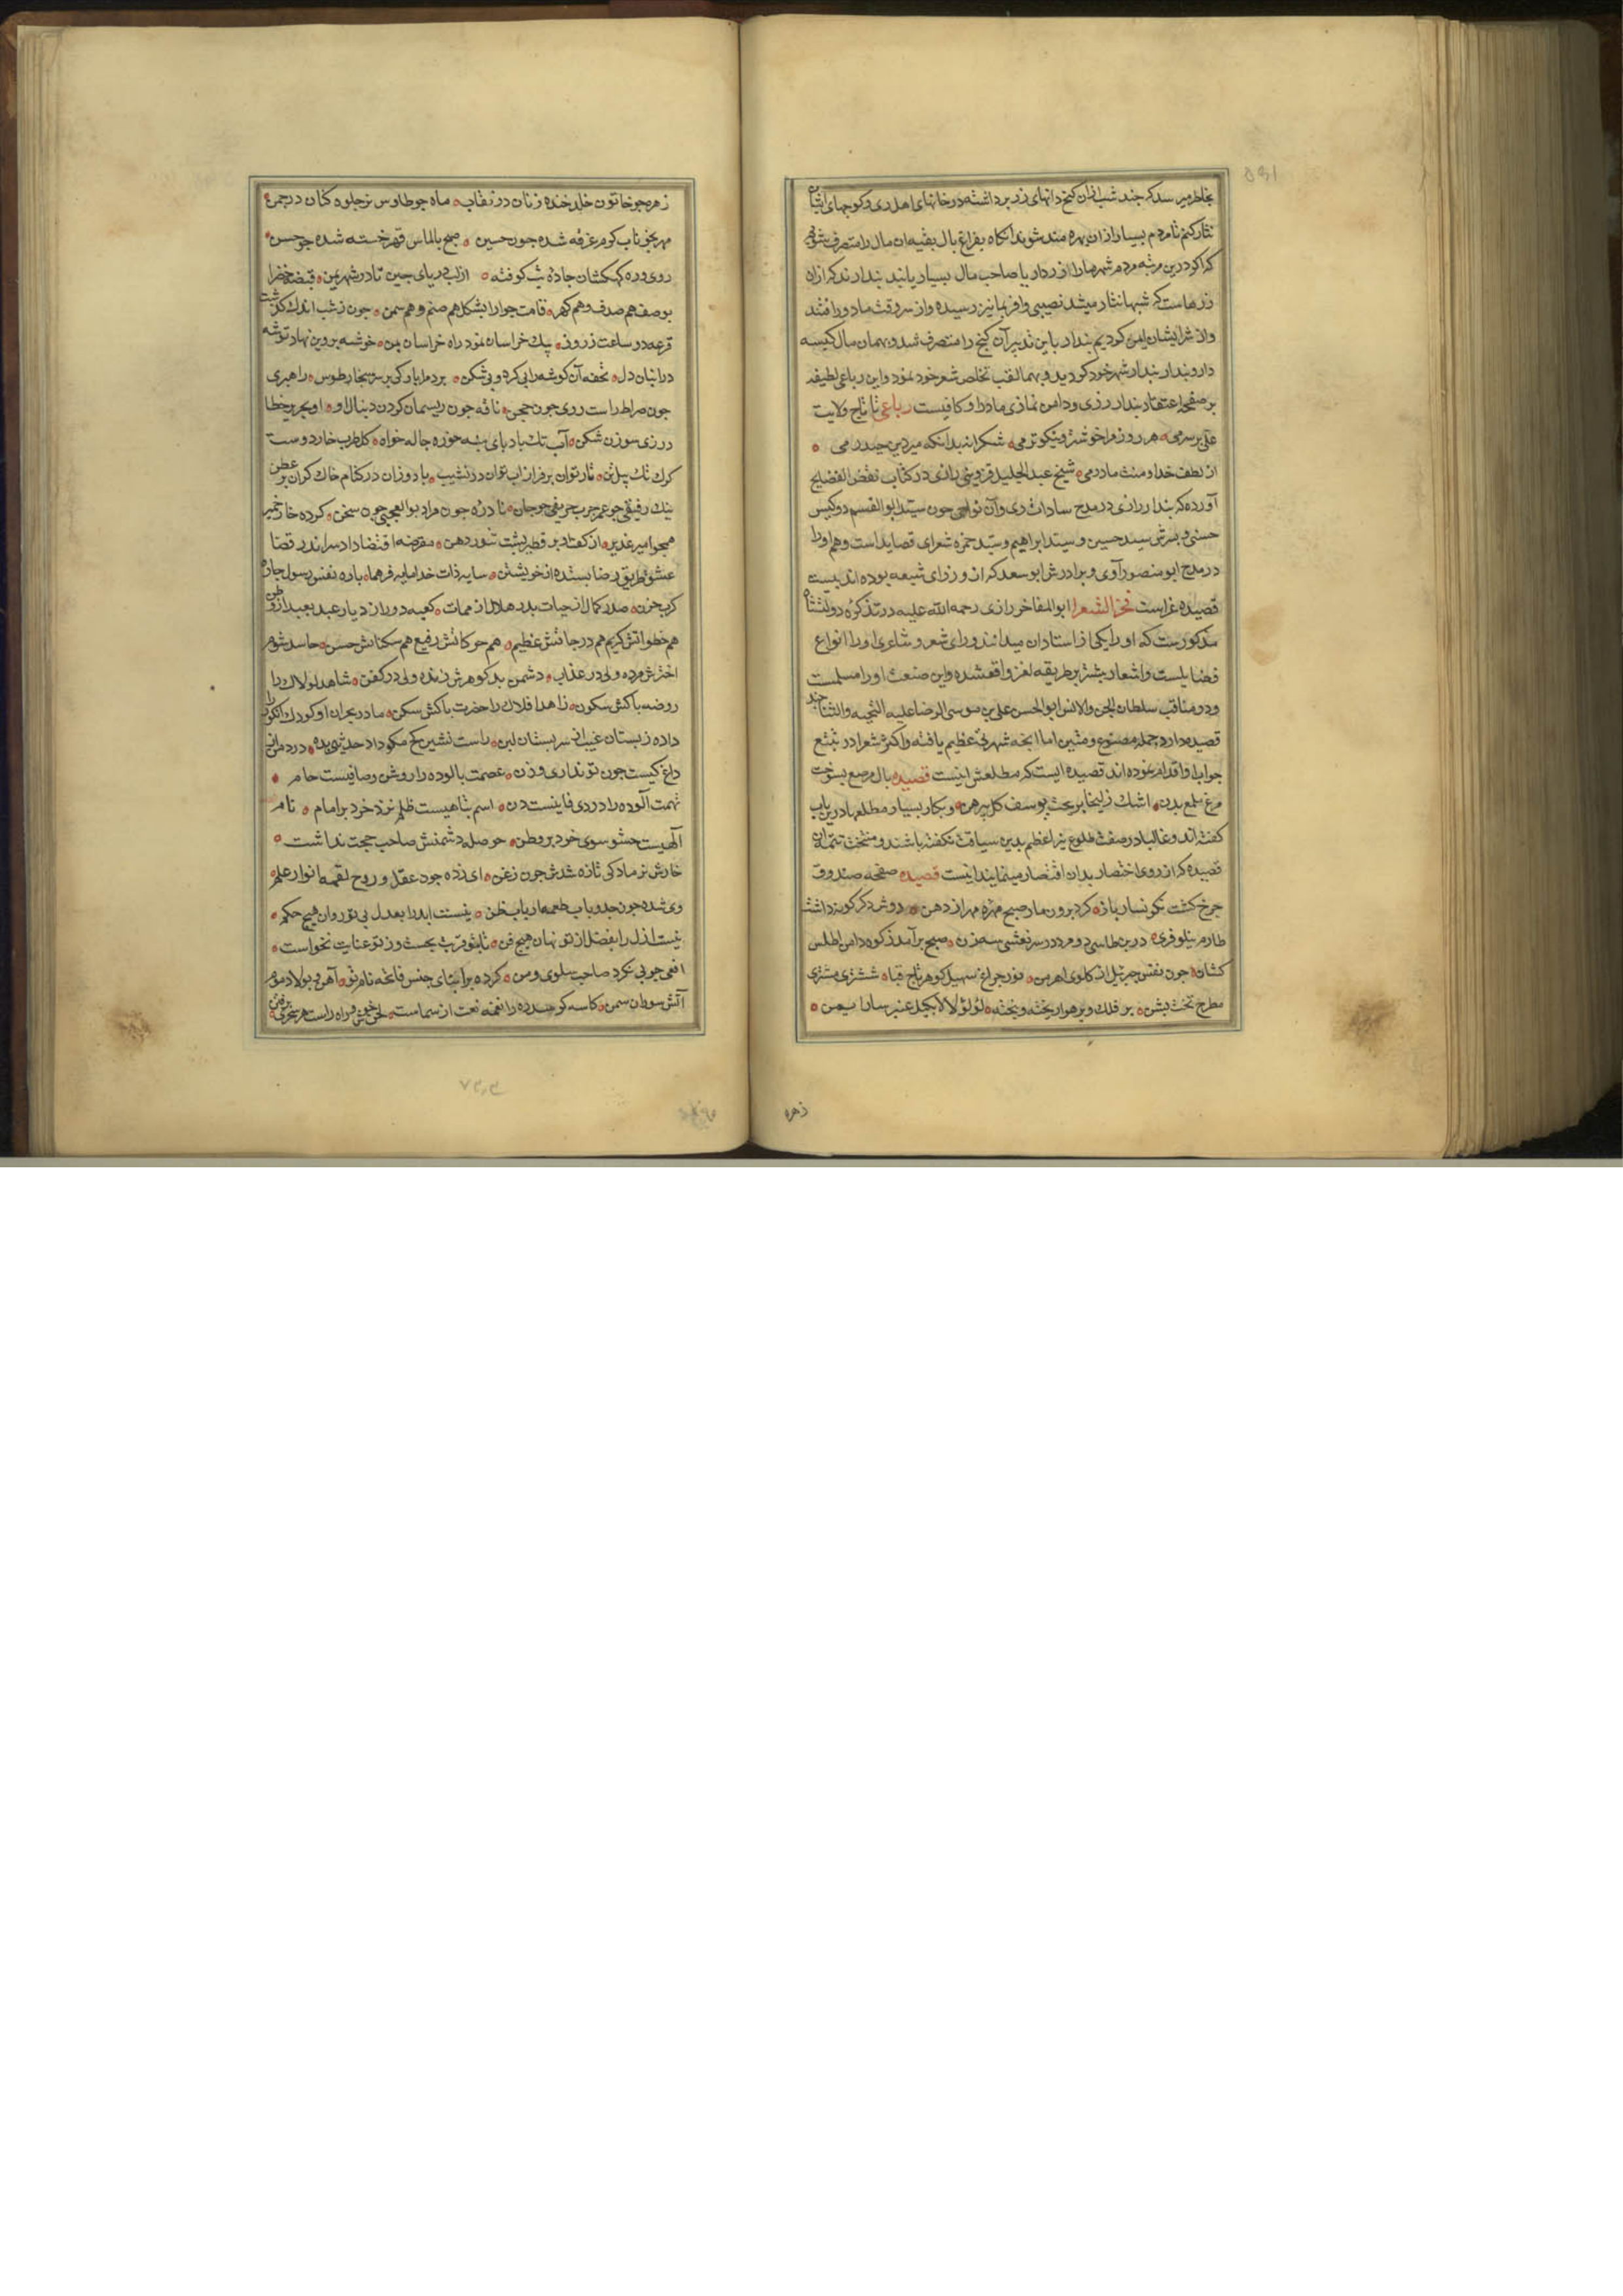 بخاطر میرسد که چند شب ازان کنج دانهای زر برداشته در خانهای اهل ری و کوچهای ایشان
نثار کنم تا مردم بسیار ازان بهره مند شوند انکاه بفراغ بال بقیه ان مال را متصرف شویم
که اکر درین مرتبه مردم شهر مارا زردار یا صاحب مال بسیار یابند بندارند که ازان
زرهاست که شبها نثار میشد نصیبی وافر بما نیز رسیده و از سر وقت ما دور افتند
و از شر ایشان ایمن کردیم بندار باین تدبیر آن کنج را متصرف شد و بهمان مال کیسه
دار و بندار شهر خود کردید و بهما لقب تخلص شعر خود نمود و این رباعی لطیفه
بر صفحه اعتقاد بندار رزی و دامن نمازی مادر او کافیست رباعی تا تاج ولایت
علی بر سرمی هر روز مرا خوشتر و نیکوترمی شکرانه بدانکه میر دین حیدرمی
از لطف خدا و منت مادرمی شیخ عبد الجلیل قزوینی رازی در کتاب نقض الفضایح
آورده که بندار رازی در مدح سادات ری و آن نواحی چون سید ابو القسم دو کیس
حسنی و پسرش سید حسین و سید ابراهیم و سید حمزه شعرای قصاید است و هم او را
در مدح ابو منصور آوی و برادرش ابو سعد که از وزرای شیعه بوده اند بیست
قصیده غراست فخر الشعرا ابو المفاخر رازی رحمه الله علیه در تذکره دولتشاه
مذکورست که او را یکی از استادان میدانند و رای شعر و شاعری او را انواع
فضایلست و اشعار بیشتر بر طریقه لغز واقعشده و این صنعت او را مسلمست
و در مناقب سلطان الجن و الانس ابو الحسن علی بن موسی الرضا علیه التحیه و الثنا چند
قصیده دارد جمله مصنوع و متین اما انچه شهرتی عظیم یافته و اکثر شعرا در تتبع
جواب او اقدام نموده اند قصیده ایست که مطلعش اینست قصیده بال مرصع بسوخت
مرغ ملمع بدن اشک زلیخا بریخت یوسف کل پیرهن و بکار بسیار مطلعها درین باب
کفته اند و غالبا در صفت طلوع نیر اعظم بدین سیاقت نکفته باشند و منتخب تتمه ان
قصیده که از روی اختصار بدان اقتصار مینماید اینست قصیده صفحه صندوق
چرخ کشت نکونسار باز کرد برون مار صبح مهره مهر از دهن دوش دکرکونه داشت
طارم نیلوفری درین طاسی دو مرد در سر نعشی سه زن صبح برآمد ز کوه دامن اطلس
کشان چون نفس جبرئیل از کلوی اهرمن نور چراغ سهیل کوهر تاج قباد ششتری مشتری
مطرح تخت پشن بر فلک و بر هوا ریخته و بیخته لؤلؤ لالا بکیل عنبر سارا بمن
زهره
زهره چو خاتون خلد خنده زنان در نقاب ماه چو طاوس نر جلوه کنان در چمن
مهر بخوناب کوم غرفه شده چون حسین صبح بالماس قهر خسته شده چو حسن
روی وره کهکشان جاده شب کوفته از لب دریای چین تا در شهر یمن قبضه خضرا
بوصف هم صدف و هم کهر قامت جوزا بشکل هم صنم و هم سمن چون ز شب اندک کذشت
قرعه در ساعت ز روز پیک خراسان نمود راه خراسان بمن خوشه پروین نهاد توشه
در انبان دل تحفه آن کوشه را بی کره و بی شکن برد مرا بارکی بر سر هنجار طوس راهبری
چون صراط راست روی چون مجن ناقه چون ریسمان کردن دنبال او او بجریر خطا
درزی سوزن شکن آب تک باد پای پشه خوره جاله خواه کل طرب خار دوست
کرک تک پیل تن تار توان بر فراز اب توان در نشیب باد وزان در کنام خاک کران بر عطن
نیک رفیقی چو عمر چرب حریفی چو جان نادره چون مراد بوالعجبی چون سخن کرده خار خمیر
همچو امیر غدیر از کف او بر قطر پشت تنور دهن مقرضه اقتضا داد سر اندر قضا
عشق طریق رضا بستده از خویشتن سایه ذات خدا مایه فرهما پاره نفس رسول چاره
کرب حزن صدر کمال از حیات بدر هلال از ممات کعبه دور از دیار عید بعید از وطن
هم خطواتش کریم هم درجاتش عظیم هم حرکاتش رفیع هم سکناتش حسن حاسد شوم
اخترش مرده ولی در عذاب دشمن بد کوهرش زنده ولی در کفن شاهد لولاک را
روضه پاکش سکون زاهد افلاک را حضرت پاکش سکن مادر بحران او کودک انکور را
داده ز پستان غیب از سر پستان لبن راست نشین کج مکو داد حدیثی بده درد مرا از
داغ کیست چون تو نداری وزن عصمت پالوده را روشن و صافیست جام
تهمت آلوده را دردی فانیست دن اسم شاهیست ظلم نزد خرد بر امام نام
آلهیست حشو سوی خرد بر وطن حوصله دشمنش صاحب حجت نداشت
خارش نر مادکی تازه شدش چون زغن ای زده جود عقل و روح لقمه انوار علم
وی شده چون جد و باب طعمه ارباب ظن نیست ابد را بعدل بی تو روان هیچ حکم
نیست ازل را بفضل از تو نهان هیچ فن تا بتو قربت بجست وز تو عنایت نخواست
افعی چوبی نکرد صاحب سلوی و من کرده بر ابنای جنس فاتحه نام تو آهن و بولاد موم
آتش سوطان سمن کاسه کو سدره را نغمه نعت از سماست لحن خوش و راه راست